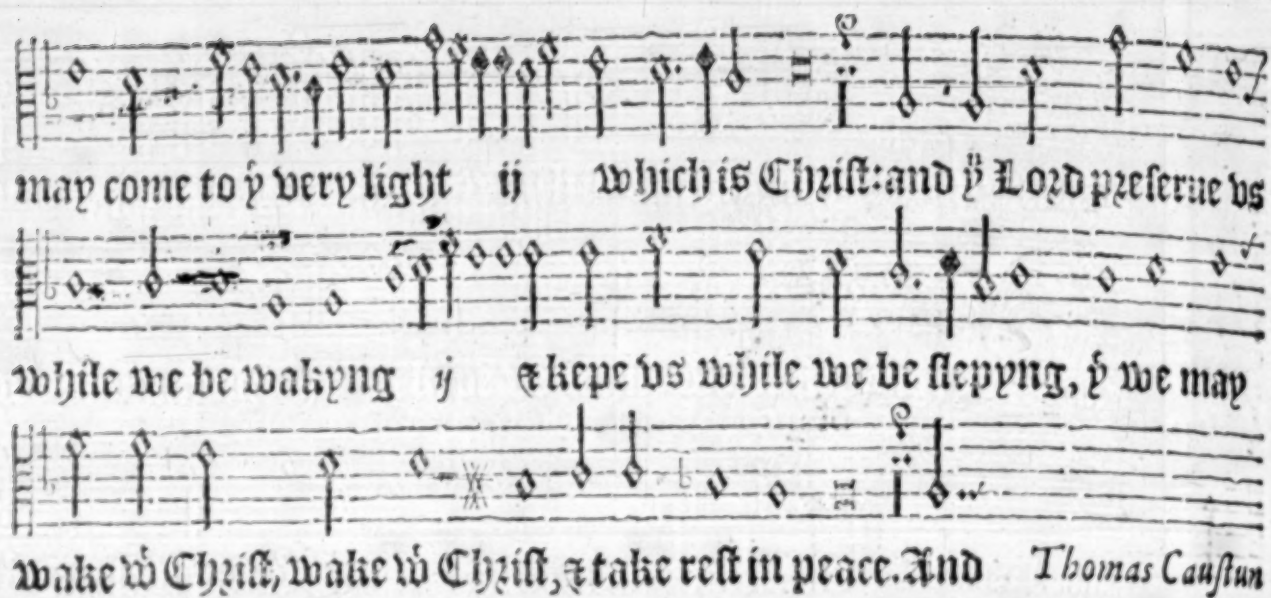 may come to yͤ very light ij which is Chriſt: and yͤ Lord preſerue vs
while we be wakyng ij & kepe vs while we be ſlepyng, yͭ we may
wake wͭ Chriſt, wake wͭ Chriſt, & take reſt in peace. And Thomas Cauſtun